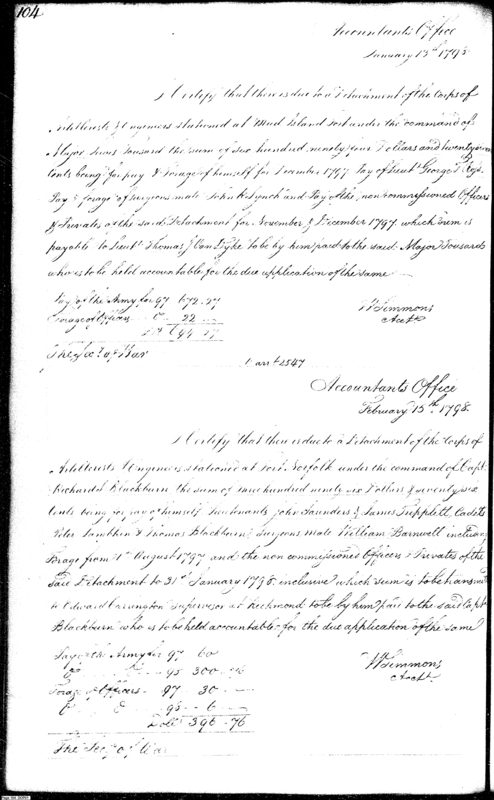 104
Accountants Office
January 15th 1798
I Certify that there is due to a Detachment of the Corps of
Artillerists & Engineers stationed at Mud Island Fort under the command of
Major Lewis Tousard the sum of Six hundred ninety four Dollars and twenty seven
Cents being for pay & forage of himself for December 1797 Pay of Lieut George
Pay & forage of Surgeons mate John Lynch and Pay of the non commissioned Officers
& Privates of the said Detachment for November & December 1797 which sum is
payable to Lieut Thomas J Van Dyke to be by him paid to the said Major Tousard
who is to be held accountable for the due application of the same
Pay of the Army for 97 672..27
Forage of Officers 22
694 27
W Simmons
Acct
The Sec'y of War
Warrt 2547
Accountants Office
February 15th 1798.
I Certify that there is due to a Detachment of the Corps of
Artillerists & Engineers stationed at Fort Norfolk under the command of Capt
Richard S Blackburn the sum of three hundred ninety six Dollars & seventy six
Cents being for pay of himself Lieutenants John Saunders & James Tripplett, Cadets
Peter Lambkin & Thomas Blackburn, Surgeons mate William Barnwell including
forage from August 1797 and the non commissioned Officers & Privates of the
said Detachment to 31st January 1798 inclusive which sum is to be transmitted
to Edward Carrington Supervisor at Richmond to be by him paid to the said Capt
Blackburn who is to be held accountable for the due application of the same
Pay of the Army for 97 60
98 300..76
Forage of Officers 97 30
98 6
Dolls 396..76
W Simmons
Acct
The Secy of War